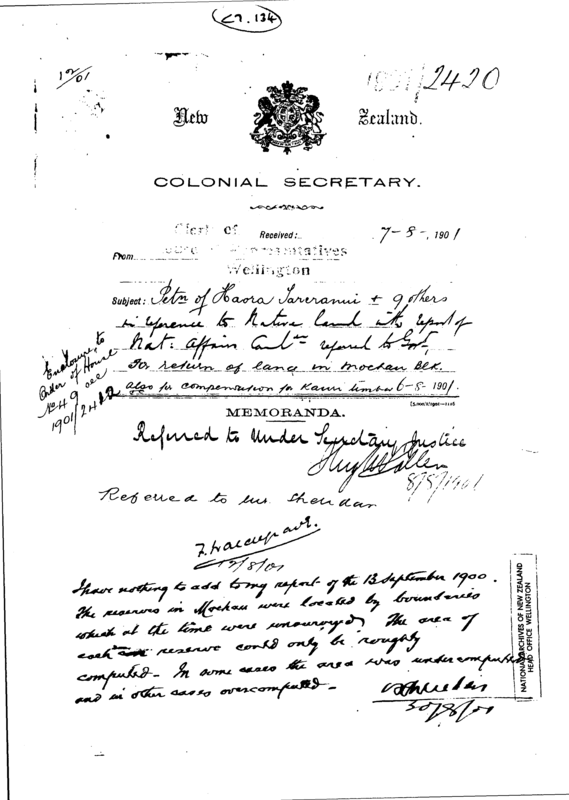 C7.134
12/01
1901/2420
New Zealand.
COLONIAL SECRETARY.
Clerk of
Received: 7-8-, 1901
From House of Representatives
Wellington
Subject: Petn of Haora Tareranui + 9 others
in reference to Native land with report of
Nat: Affairs Comtee referred to Govt.
For return of land in Moehau Blk.
also for compensation for Kauri timber 6-8-1901.
Enclosure to
Order of House
No 49 see
1901/2422
MEMORANDA.
Referred to Under Secretary Justice
Hugh Pollen
8/8/1901
Referred to Mr. Sheridan
F. Waldegrave.
12/8/01
I have nothing to add to my report of the 13 September 1900.
The reserves in Moehau were located by boundaries
which at the time were unsurveyed. The area of
each reserve could only be roughly
computed. In some cases the area was undercomputed
and in other cases overcomputed.
Sheridan
30/8/01
NATIONAL ARCHIVES OF NEW ZEALAND
HEAD OFFICE WELLINGTON